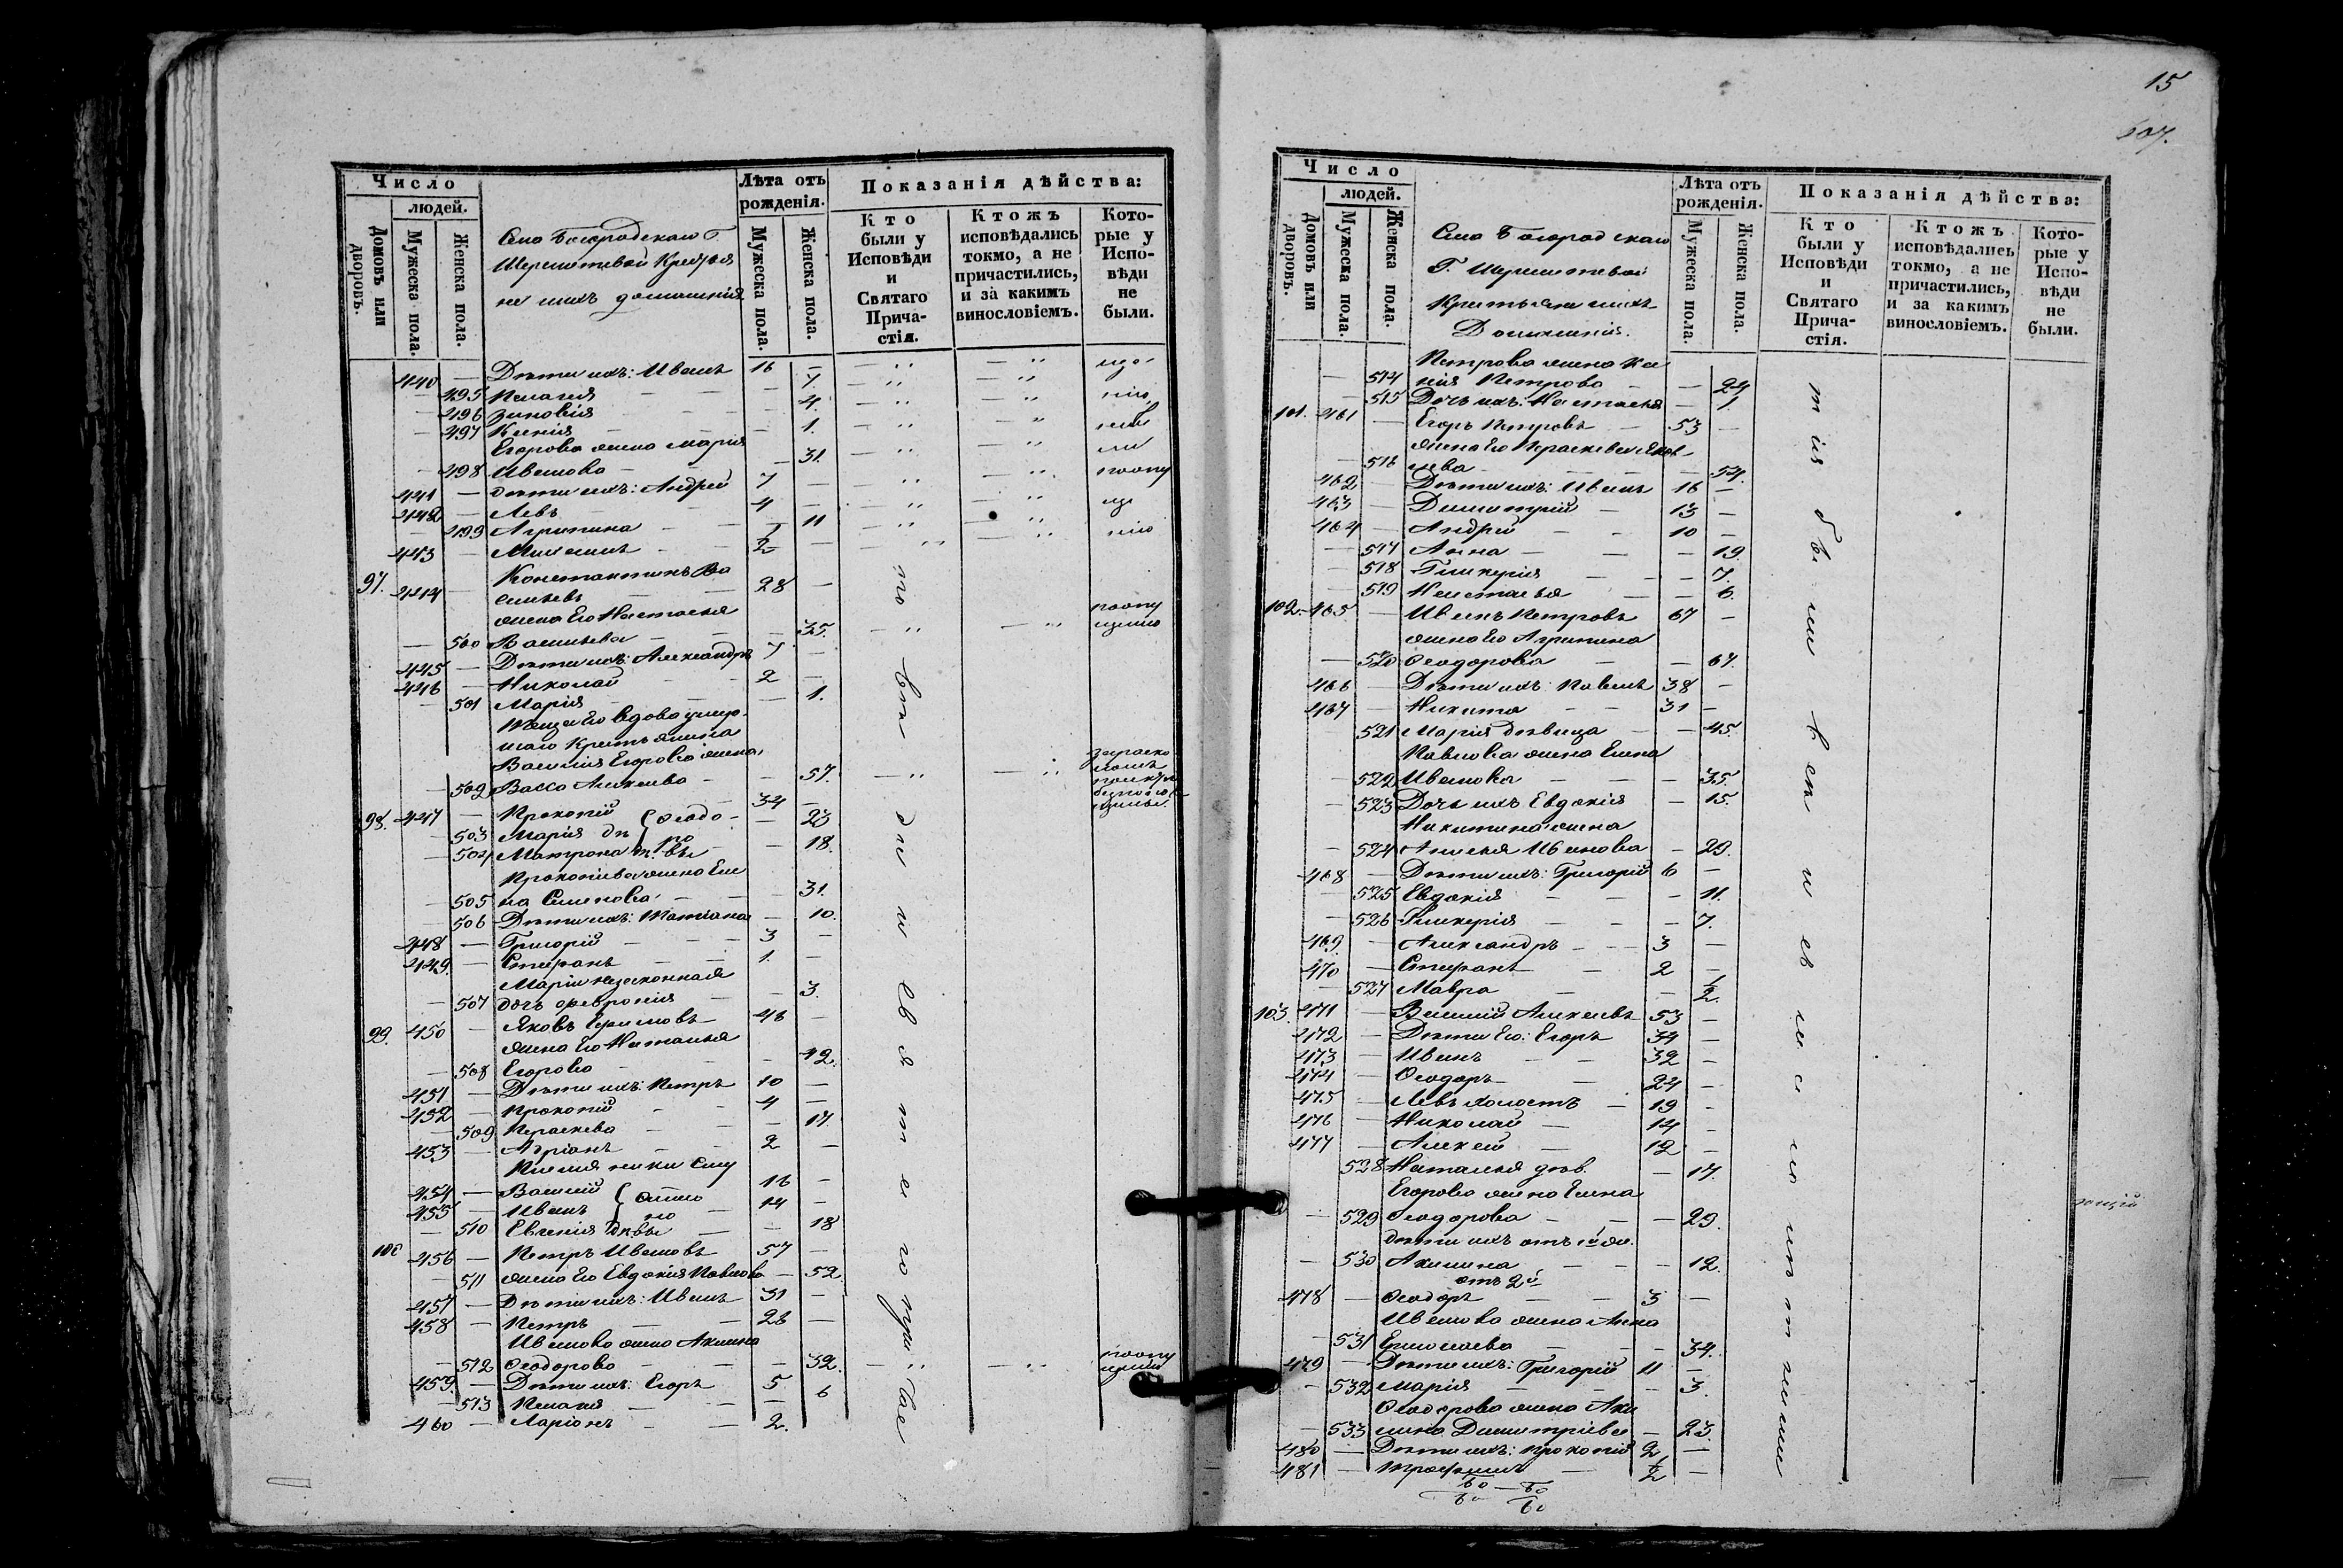 Число
людей.
Домовъ или дворовъ.
Мужеска пола.
Женска пола.
Село Богородскаго Г.
Шереметевой Крестья
не ихъ домашнія
Лѣта отъ рожденія.
Мужеска пола.
Женска пола.
Показанія дѣйства:
Кто были у Исповѣди и Святаго Прича- стія.
Ктожъ исповѣдались токмо, а не причастились, и за какимъ винословіемъ.
Кото- рые у Испо- вѣди не были.
440 — Дѣти ихъ: Иванъ 16 —
— 495 Пелагея — 7.
— 496 Зиновія — 4.
— 497 Ксенія — 1.
Егорова жена Марія
— 498 Иванова — 31.
441 — дѣти ихъ: Андрей 7 —
442 — Левъ 4 —
— 499 Агрипина — 11
443 — Михаилъ 1/2 —
Константинъ Ва
97. 444 — сильевъ 28 —
жена его Настасья
— 500 Васильева — 35.
445 — Дѣти ихъ: Александръ 7 —
446 — Николай 2 —
— 501 Марія — 1.
Теща его вдова умер-
шаго Крестьянина
Василія Егорова жена
— 502 Васса Алексѣева — 57.
98. 447 — Прокопій { Ѳеодо- 34 —
— 503 Марія дѣ { ро — 23
— 504 Матрона { вы — 18.
Прокопіева жена Еле
— 505 на Семенова — 31.
506 Дѣти ихъ: Татіана — 10.
448 — Григорій 3 —
449. — Стефанъ 1. —
Маріи незаконная
— 507 дочь Февронія — 3.
99. 450 — Яковъ Ефимовъ 46 —
жена его Наталья
— 508 Егорова — 42.
451 — Дѣти ихъ: Петръ 10 —
452 — Прокопій 4 —
— 509 Параскева — 17.
453 — Адріанъ 2 —
Племянники ему
454 — Василій { 16 —
455 — Иванъ 14 —
— 510 Евгенія дѣвы — 18
100 456 — Петръ Ивановъ 57 —
— 511 жена его Евдокія Павлова — 52.
457 — Дѣти ихъ: Иванъ 31 —
458 — Петръ 26 —
Иванова жена Акилина
— 512 Ѳеодорова — 32.
459. — Дѣти ихъ: Егоръ 5
— 513 Пелагея — 6
460 — Ларіонъ 2.
15
507.
Число
людей.
Домовъ или дворовъ.
Мужеска пола.
Женска пола.
Село Богородскаго
Г. Шереметевой
Крестьяне ихъ
Домашнія.
Лѣта отъ рожденія.
Мужеска пола.
Женска пола.
Показанія дѣйства:
Кто были у Исповѣди и Святаго Прича- стія.
Ктожъ исповѣдались токмо, а не причастились, и за какимъ винословіемъ.
Кото- рые у Испо- вѣди не были.
Петрова жена Ксе
— 514 нія Петрова — 24
— 515 Дочь ихъ: Настасья — 1.
101. 461 — Егоръ Петровъ 53 —
жена его Параскева Яков
— 516 лева — 54.
462 Дѣти ихъ: Иванъ 16 —
463 — Димитрій 13 —
464 — Андрей 10 —
— 517 Анна — 19.
— 518 Гликерія — 7.
— 519 Настасья — 6.
102. 465. — Иванъ Петровъ 67 —
жена его Агрипина
— 520 Ѳеодорова — 67.
466 — Дѣти ихъ: Павелъ 38 —
467 — Никита 31 —
521 Марія дѣвица — 45.
Павлова жена Елена
— 522 Иванова — 35.
— 523 Дочь ихъ Евдокія — 15.
Никитина жена
— 524 Анисья Иванова — 29.
468 — Дѣти ихъ: Григорій 6 —
— 525 Евдокія — 11.
— 526 Гликерія — 7.
469. — Александръ 3 —
470 — Стефанъ 2 —
— 527 Мавра — 1/2.
103. 471 — Василій Алексѣевъ 53 —
472 — Дѣти его: Егоръ 34 —
473 — Иванъ 32 —
474 — Ѳеодоръ 24 —
475 — Левъ холостъ 19 —
476 — Николай 14 —
477 — Алексѣй 12 —
528 Наталья дѣв. — 17.
Егорова жена Елена
— 529 Ѳеодорова — 29.
дѣти ихъ отъ 1й жи.
— 530 Акилина — 12.
отъ 2й
478 — Ѳеодоръ 3 —
Иванова жена Анна
— 531 Ермолаева — 34.
479 — Дѣти ихъ: Григорій 11 —
— 532 Марія — 3.
Ѳеодорова жена Аки
— 533 лина Димитріева — 23.
480 — Дѣти ихъ: Прокопій 2 —
481 — Трофимъ 1/2 —